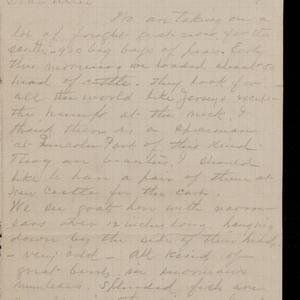 Dear
We are taking on a
lot of freight just now for the
south - 900 big bags of peas. Early
this morning we loaded about 50
head of cattle. They look for
all the world like Jerseys except
the hump at the neck. I
think there is a specimen
at Lincoln Park of this kind.
They are beauties. I should
like to have a pair of them at
New Castle for the cart.
We see goats here with
ears over 12 inches long hanging
down by the side of their heads
- very odd - All kind of
great birds in enormous
numbers. Splendid fish are